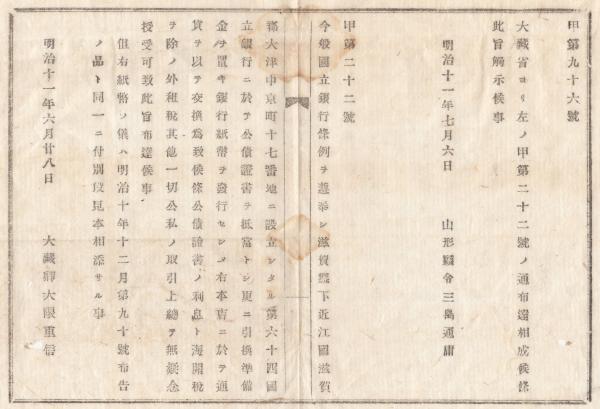 甲第九十六號
大藏省ヨリ左ノ甲第二十二號ノ通布達相成候條
此旨觸示候事
明治十一年七月六日
山形縣令三島通庸
甲第二十二號
今般國立銀行條例ヲ遵奉シ滋賀縣下近江國滋賀
郡大津中京町十七番地ニ設立シタル第六十四國
立銀行ニ於テ公債證書ヲ抵當トシ更ニ引換準備
金ヲ置キ銀行紙幣ヲ發行セシメ右本店ニ於テ通
貨ヲ以テ交換爲致候條公債證書ノ利息ト海關税
ヲ除ノ外租税其他一切公私ノ取引上總テ無疑念
授受可致此旨布達候事
但右紙幣ノ儀ハ明治十年十二月第九十號布告
ノ品ト同一ニ付別段見本相添サル事
明治十一年六月廿八日
大藏卿大隈重信